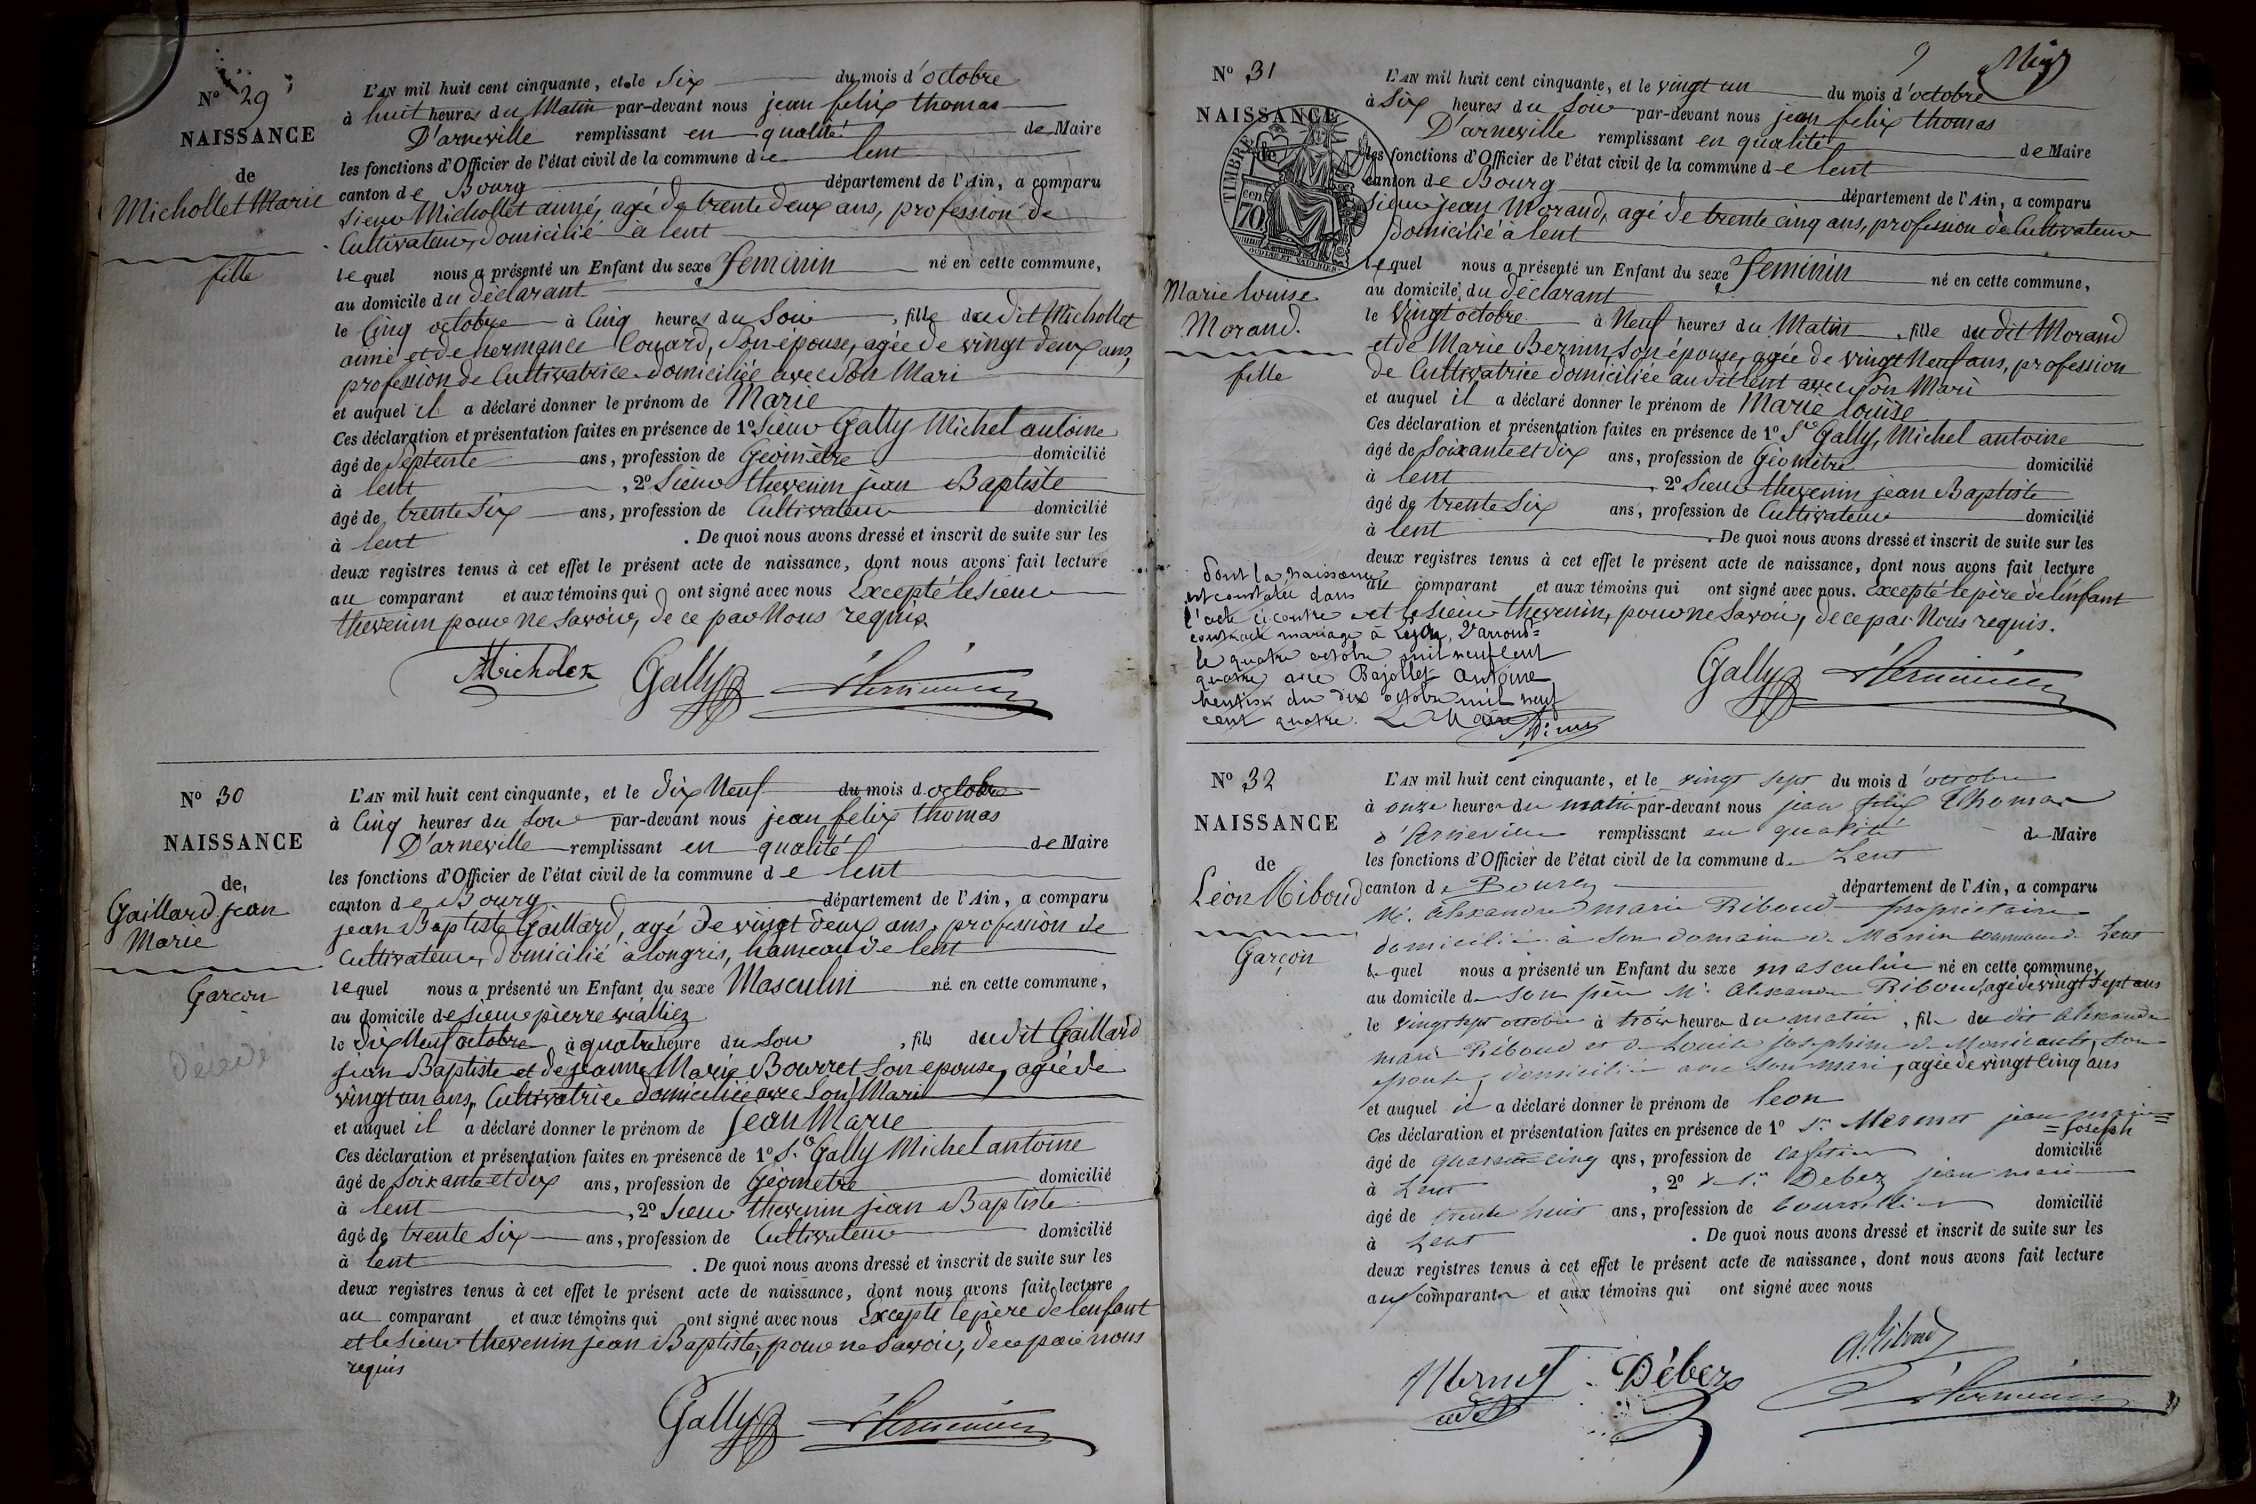 N° 29
NAISSANCE
de
Michollet Marie
fille
L'AN mil huit cent cinquante, et le Six du mois d'octobre
à huit heures du Matin par-devant nous jean felix thomas
D'arneville remplissant en qualité de Maire
les fonctions d'Officier de l'état civil de la commune de lent
canton de Bourg département de l'Ain, a comparu
Sieur Michollet aimé, agé de trente deux ans, profession de
Cultivateur, domicilié à lent
lequel nous a présenté un Enfant du sexe feminin né en cette commune,
au domicile du déclarant
le Cinq octobre à Cinq heures du Soir, fille du dit Michollet
aimé et de hermance Couard, Son épouse, agée de vingt deux ans,
profession de Cultivatrice domiciliée avec Son Mari
et auquel il a déclaré donner le prénom de Marie
Ces déclaration et présentation faites en présence de 1° Sieur Gally Michel antoine
âgé de Septente ans, profession de Géomètre domicilié
à lent, 2° Sieur thevenin jean Baptiste
âgé de trente Six ans, profession de Cultivateur domicilié
à lent. De quoi nous avons dressé et inscrit de suite sur les
deux registres tenus à cet effet le présent acte de naissance, dont nous avons fait lecture
au comparant et aux témoins qui ont signé avec nous Excepté le Sieur
thevenin pour ne Savoir, de ce par Nous requis
Gally
N° 30
NAISSANCE
de
Gaillard jean
Marie
Garçon
Décédé
L'AN mil huit cent cinquante, et le dix Neuf du mois d'octobre
à Cinq heures du Soir par-devant nous jean felix thomas
D'arneville remplissant en qualité de Maire
les fonctions d'Officier de l'état civil de la commune de lent
canton de Bourg département de l'Ain, a comparu
jean Baptiste Gaillard, agé de vingt deux ans, profession de
Cultivateur, domicilié à longris, hameau de lent
lequel nous a présenté un Enfant du sexe Masculin né en cette commune,
au domicile de Sieur pierre vialliez
le Dix Neuf octobre à quatre heure du Soir, fils du dit Gaillard
jean Baptiste et de jeanne Marie Bourret Son epouse, agée de
vingt un ans, Cultivatrice domiciliée avec Son Mari
et auquel il a déclaré donner le prénom de Jean Marie
Ces déclaration et présentation faites en présence de 1° Sr Gally Michel antoine
âgé de Soixante et dix ans, profession de Géometre domicilié
à lent, 2° Sieur thevenin jean Baptiste
âgé de trente Six ans, profession de Cultivateur domicilié
à lent. De quoi nous avons dressé et inscrit de suite sur les
deux registres tenus à cet effet le présent acte de naissance, dont nous avons fait lecture
au comparant et aux témoins qui ont signé avec nous Excepté le père de l'enfant
et le Sieur thevenin jean Baptiste, pour ne Savoir, de ce par nous
requis
Gally
9
N° 31
NAISSANCE
de
TIMBRE
70
Marie louise
Morand.
fille
L'AN mil huit cent cinquante, et le vingt un du mois d'octobre
à Six heures du Soir par-devant nous jean felix thomas
D'arneville remplissant en qualité de Maire
les fonctions d'Officier de l'état civil de la commune de lent
canton de Bourg département de l'Ain, a comparu
Sieur jean Morand, agé de trente cinq ans, profession de Cultivateur
domicilié à lent
lequel nous a présenté un Enfant du sexe feminin né en cette commune,
au domicile du déclarant
le Vingt octobre à Neuf heures du Matin, fille du dit Morand
et de Marie Bernin Son épouse, agée de vingt Neuf ans, profession
de Cultivatrice domiciliée au dit lent avec Son Mari
et auquel il a déclaré donner le prénom de Marie louise
Ces déclaration et présentation faites en présence de 1° Sr Gally, Michel antoine
âgé de Soixante et dix ans, profession de Géometre domicilié
à lent, 2° Sieur thevenin jean Baptiste
âgé de trente Six ans, profession de Cultivateur domicilié
à lent. De quoi nous avons dressé et inscrit de suite sur les
deux registres tenus à cet effet le présent acte de naissance, dont nous avons fait lecture
au comparant et aux témoins qui ont signé avec nous. Excepté le père de l'enfant
et le Sieur thevenin, pour ne Savoir, de ce par Nous requis.
dont la naissance
est constatée dans
l'acte ci contre a
contracté mariage à Lyon, 2e arrond=
le quatre octobre mil neuf cent
quatre avec Bajollet Antoine
mention du dix octobre mil neuf
cent quatre. Le Maire
Gally
N° 32
NAISSANCE
de
Léon Riboud
Garçon
L'AN mil huit cent cinquante, et le vingt sept du mois d'octobre
à onze heures du matin par-devant nous jean felix Thomas
d'Arneville remplissant en qualité de Maire
les fonctions d'Officier de l'état civil de la commune de Lent
canton de Bourg département de l'Ain, a comparu
Mr. Alexandre marie Riboud propriétaire
domicilié à son domaine de Monin commune de Lent
lequel nous a présenté un Enfant du sexe masculin né en cette commune,
au domicile de son père Mr. Alexandre Riboud, agé de vingt Sept ans
le vingt sept octobre à trois heures du matin, fils du dit Alexandre
marie Riboud et de Louise josephine de Monicault, son
épouse, domiciliée avec son mari, agée de vingt Cinq ans
et auquel il a déclaré donner le prénom de leon
Ces déclaration et présentation faites en présence de 1° Sr Mermet jean marie=
=Joseph
âgé de quarante cinq ans, profession de cafetier domicilié
à Lent, 2° Sr Debez jean marie
âgé de trente huit ans, profession de bourrelier domicilié
à Lent. De quoi nous avons dressé et inscrit de suite sur les
deux registres tenus à cet effet le présent acte de naissance, dont nous avons fait lecture
aux comparants et aux témoins qui ont signé avec nous
A. Riboud
Mermet Débez